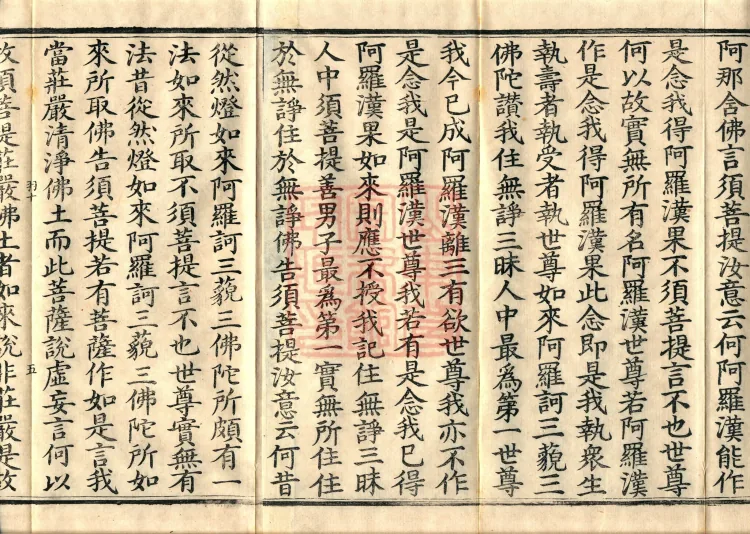 阿那含佛言須菩提汝意云何阿羅漢能作
是念我得阿羅漢果不須菩提言不也世尊
何以故實無所有名阿羅漢世尊若阿羅漢
作是念我得阿羅漢果此念即是我執衆生
執壽者執受者執世尊如來阿羅訶三藐三
佛陀讃我住無諍三昧人中最爲第一世尊
我今已成阿羅漢離三有欲世尊我亦不作
是念我是阿羅漢世尊我若有是念我已得
阿羅漢果如來則應不授我記住無諍三昧
人中須菩提善男子最爲第一實無所住住
於無諍住於無諍佛告須菩提汝意云何昔
從然燈如來阿羅訶三藐三佛陀所頗有一
法如來所取不須菩提言不也世尊實無有
法昔從然燈如來阿羅訶三藐三佛陀所如
來所取佛告須菩提若有菩薩作如是言我
當莊嚴清淨佛土而此菩薩說虛妄言何以
羽十 五
故須菩提莊嚴佛土者如來說非莊嚴是故